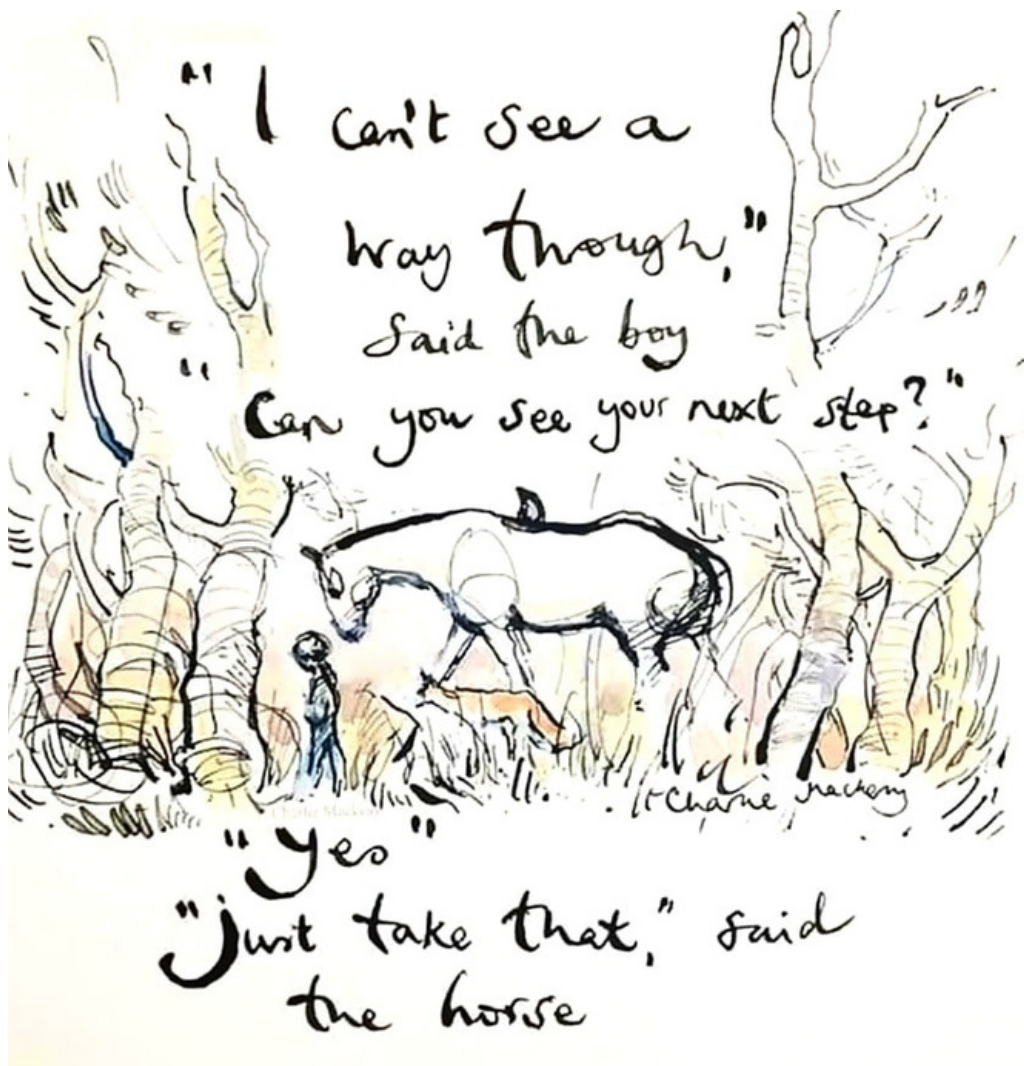 "I can't see a
way through,"
said the boy
"Can you see your next step?"
Charlie Mackesy
Charlie Mackesy
"Yes"
"Just take that," said
the horse